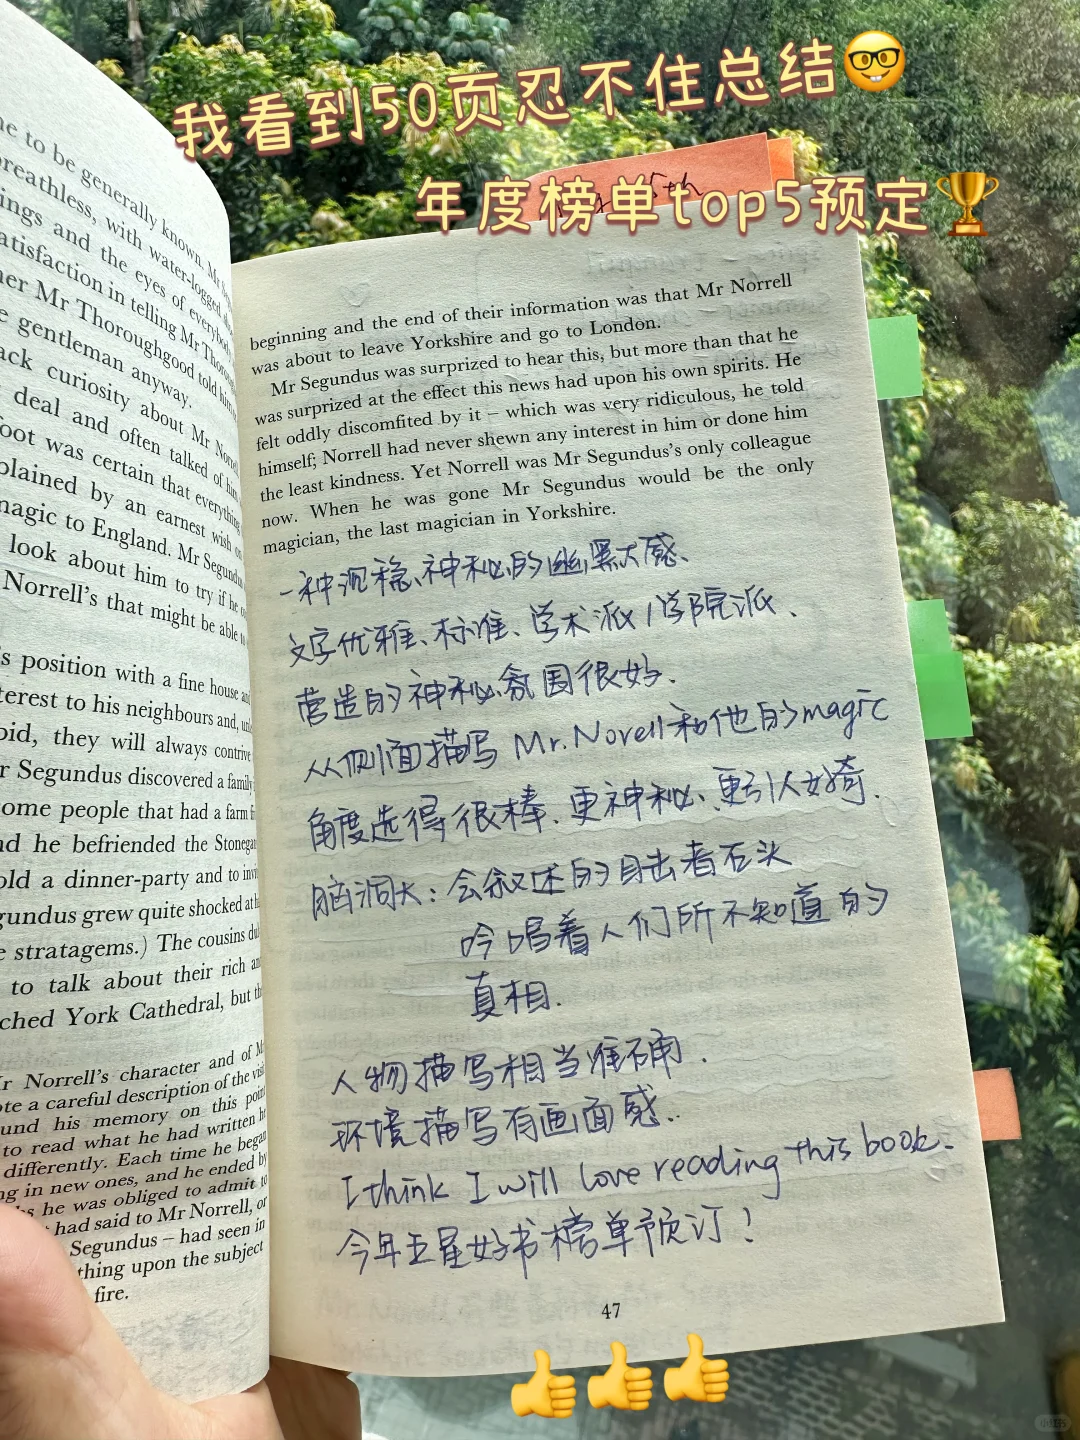 我看到50页忍不住总结🤓
年度榜单top5预定🏆
ne to be generally known. Mr
breathless, with water-logged
ings and the eyes of everybody
atisfaction in telling Mr Thorough
her Mr Thoroughgood told him
e gentleman anyway.
ack curiosity about Mr Norrell,
deal and often talked of him
foot was certain that everything
plained by an earnest wish
magic to England. Mr Segundus
look about him to try if he
Norrell's that might be able to
's position with a fine house and
terest to his neighbours and,
pid, they will always contrive
r Segundus discovered a family
some people that had a farm
nd he befriended the Stonegate
old a dinner-party and to
gundus grew quite shocked at
e stratagems.) The cousins
to talk about their rich
ched York Cathedral, but
Mr Norrell's character and of
ote a careful description of the
und his memory on this point
to read what he had written
differently. Each time he began
ng in new ones, and he ended by
he was obliged to admit to
had said to Mr Norrell, or
Segundus – had seen in
thing upon the subject
fire.
beginning and the end of their information was that Mr Norrell
was about to leave Yorkshire and go to London.
Mr Segundus was surprized to hear this, but more than that he
was surprized at the effect this news had upon his own spirits. He
felt oddly discomfited by it – which was very ridiculous, he told
himself; Norrell had never shewn any interest in him or done him
the least kindness. Yet Norrell was Mr Segundus's only colleague
now. When he was gone Mr Segundus would be the only
magician, the last magician in Yorkshire.
一种沉稳、神秘的幽默感、
文字优雅、标准、学术派/学院派、
营造的神秘氛围很好.
从侧面描写 Mr. Norell 和他的magic
角度选得很棒. 更神秘、更引人好奇.
脑洞大：会叙述的目击者石头
吟唱着人们所不知道的
真相.
人物描写相当准确.
环境描写有画面感..
I think I will love reading this book.
今年五星好书榜单预订！
47
👍👍👍
小红书